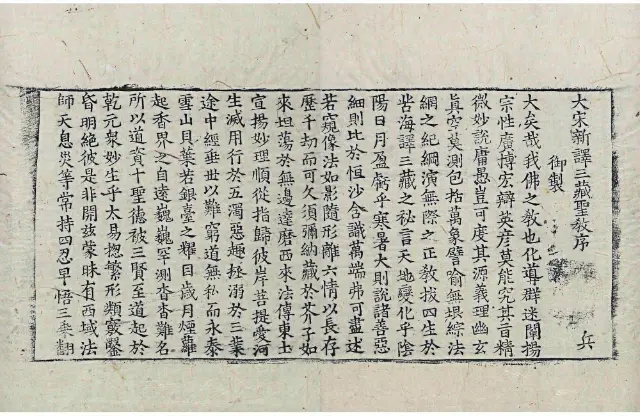 大宋新譯三藏聖教序
兵
御製
大矣哉我佛之教也化導群迷闡揚
宗性廣博宏辯英彥莫能究其旨精
微妙說庸愚豈可度其源義理幽玄
真空莫測包括萬象譬喻無垠綜法
網之紀綱演無際之正教拔四生於
苦海譯三藏之秘言天地變化乎陰
陽日月盈虧乎寒暑大則說諸善惡
細則比於恒沙含識萬端弗可盡述
若窺像法如影隨形離六情以長存
歷千劫而可久須彌納藏於芥子如
來坦蕩於無邊達磨西來法傳東土
宣揚妙理順從指歸彼岸菩提愛河
生滅用行於五濁惡趣拯溺於三業
途中經垂世以難窮道無私而永泰
雪山貝葉若銀臺之耀目歲月煙蘿
起香界之自遠巍巍罕測杳杳難名
所以道資十聖德被三賢至道起於
乾元衆妙生乎太易揔繁形類竅鑿
昏明絕彼是非開兹蒙昧有西域法
師天息災等常持四忍早悟三乘翻